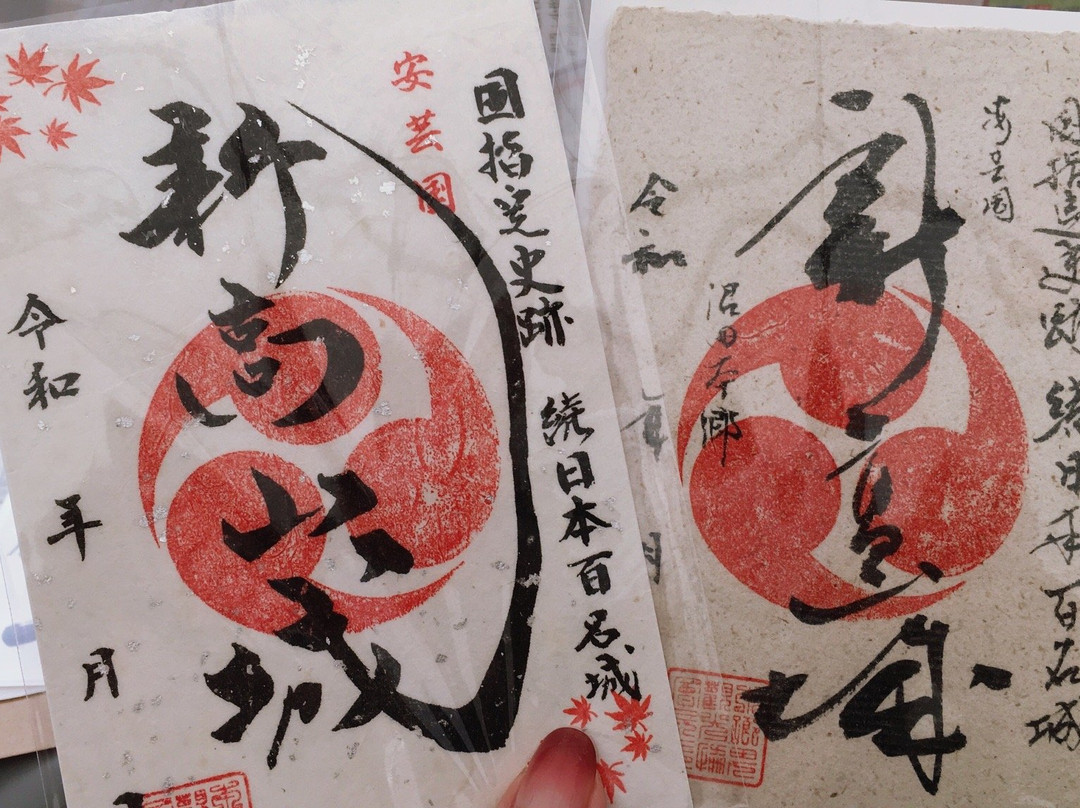 国指定史跡 続日本百名城
安芸国
新高山城
令和 年 月
続日本百名城
安芸国
新高山城
沼田本郷
令和 年 月